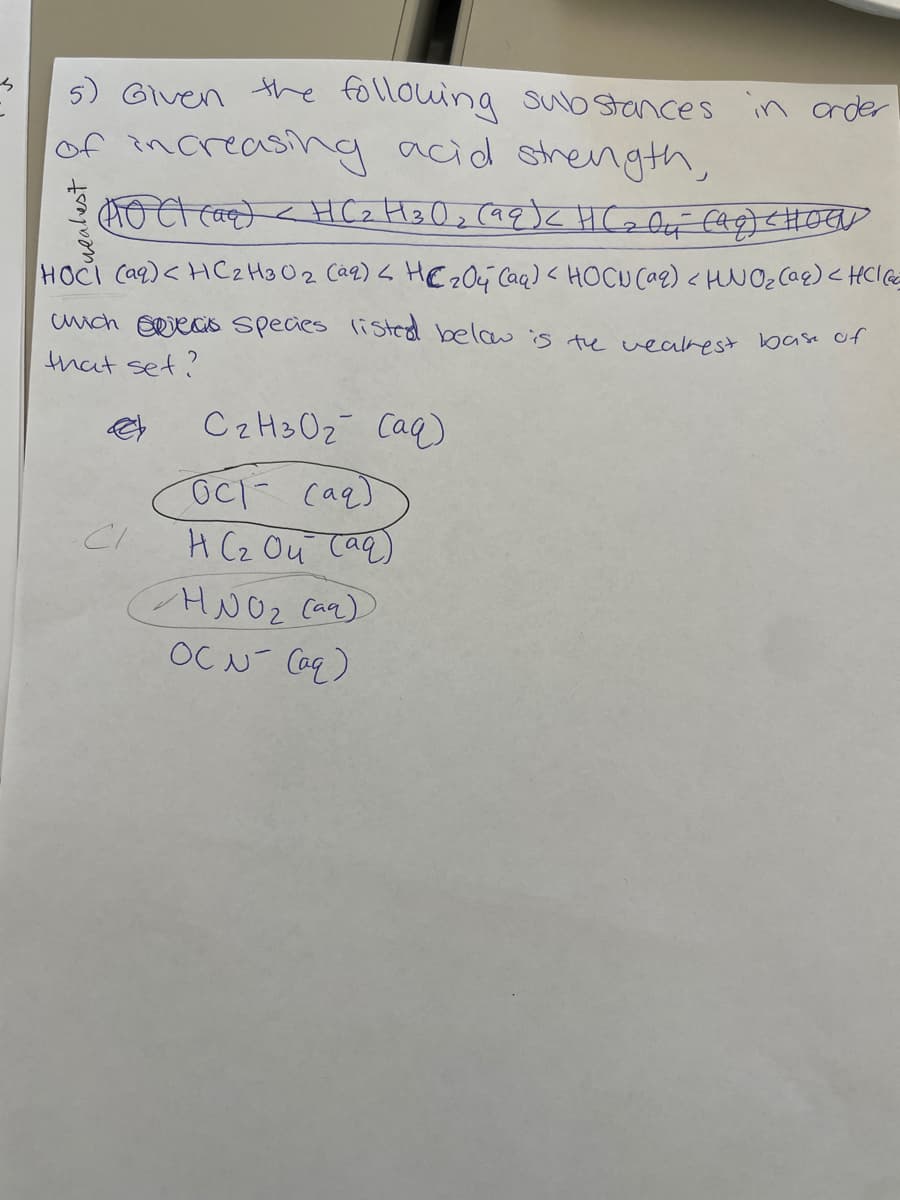 5) Given the following substances in order
of increasing acid strength,
weakest
HOCl (aq) < HC2H3O2 (aq) < HC2O4⁻ (aq) < HOCN
HOCl (aq) < HC2H3O2 (aq) < HC2O4⁻ (aq) < HOCN (aq) < HNO2 (aq) < HCl (aq)
which species listed below is the weakest base of
that set?
C2H3O2⁻ (aq)
OCl⁻ (aq)
Cl
HC2O4⁻ (aq)
HNO2 (aq)
OCN⁻ (aq)